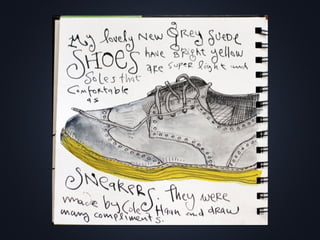 My lovely New Grey Suede
SHOES have Bright yellow
Soles that are super light and
Comfortable
as
SNeakers. They were
made by Cole Haan and draw
many compliments.